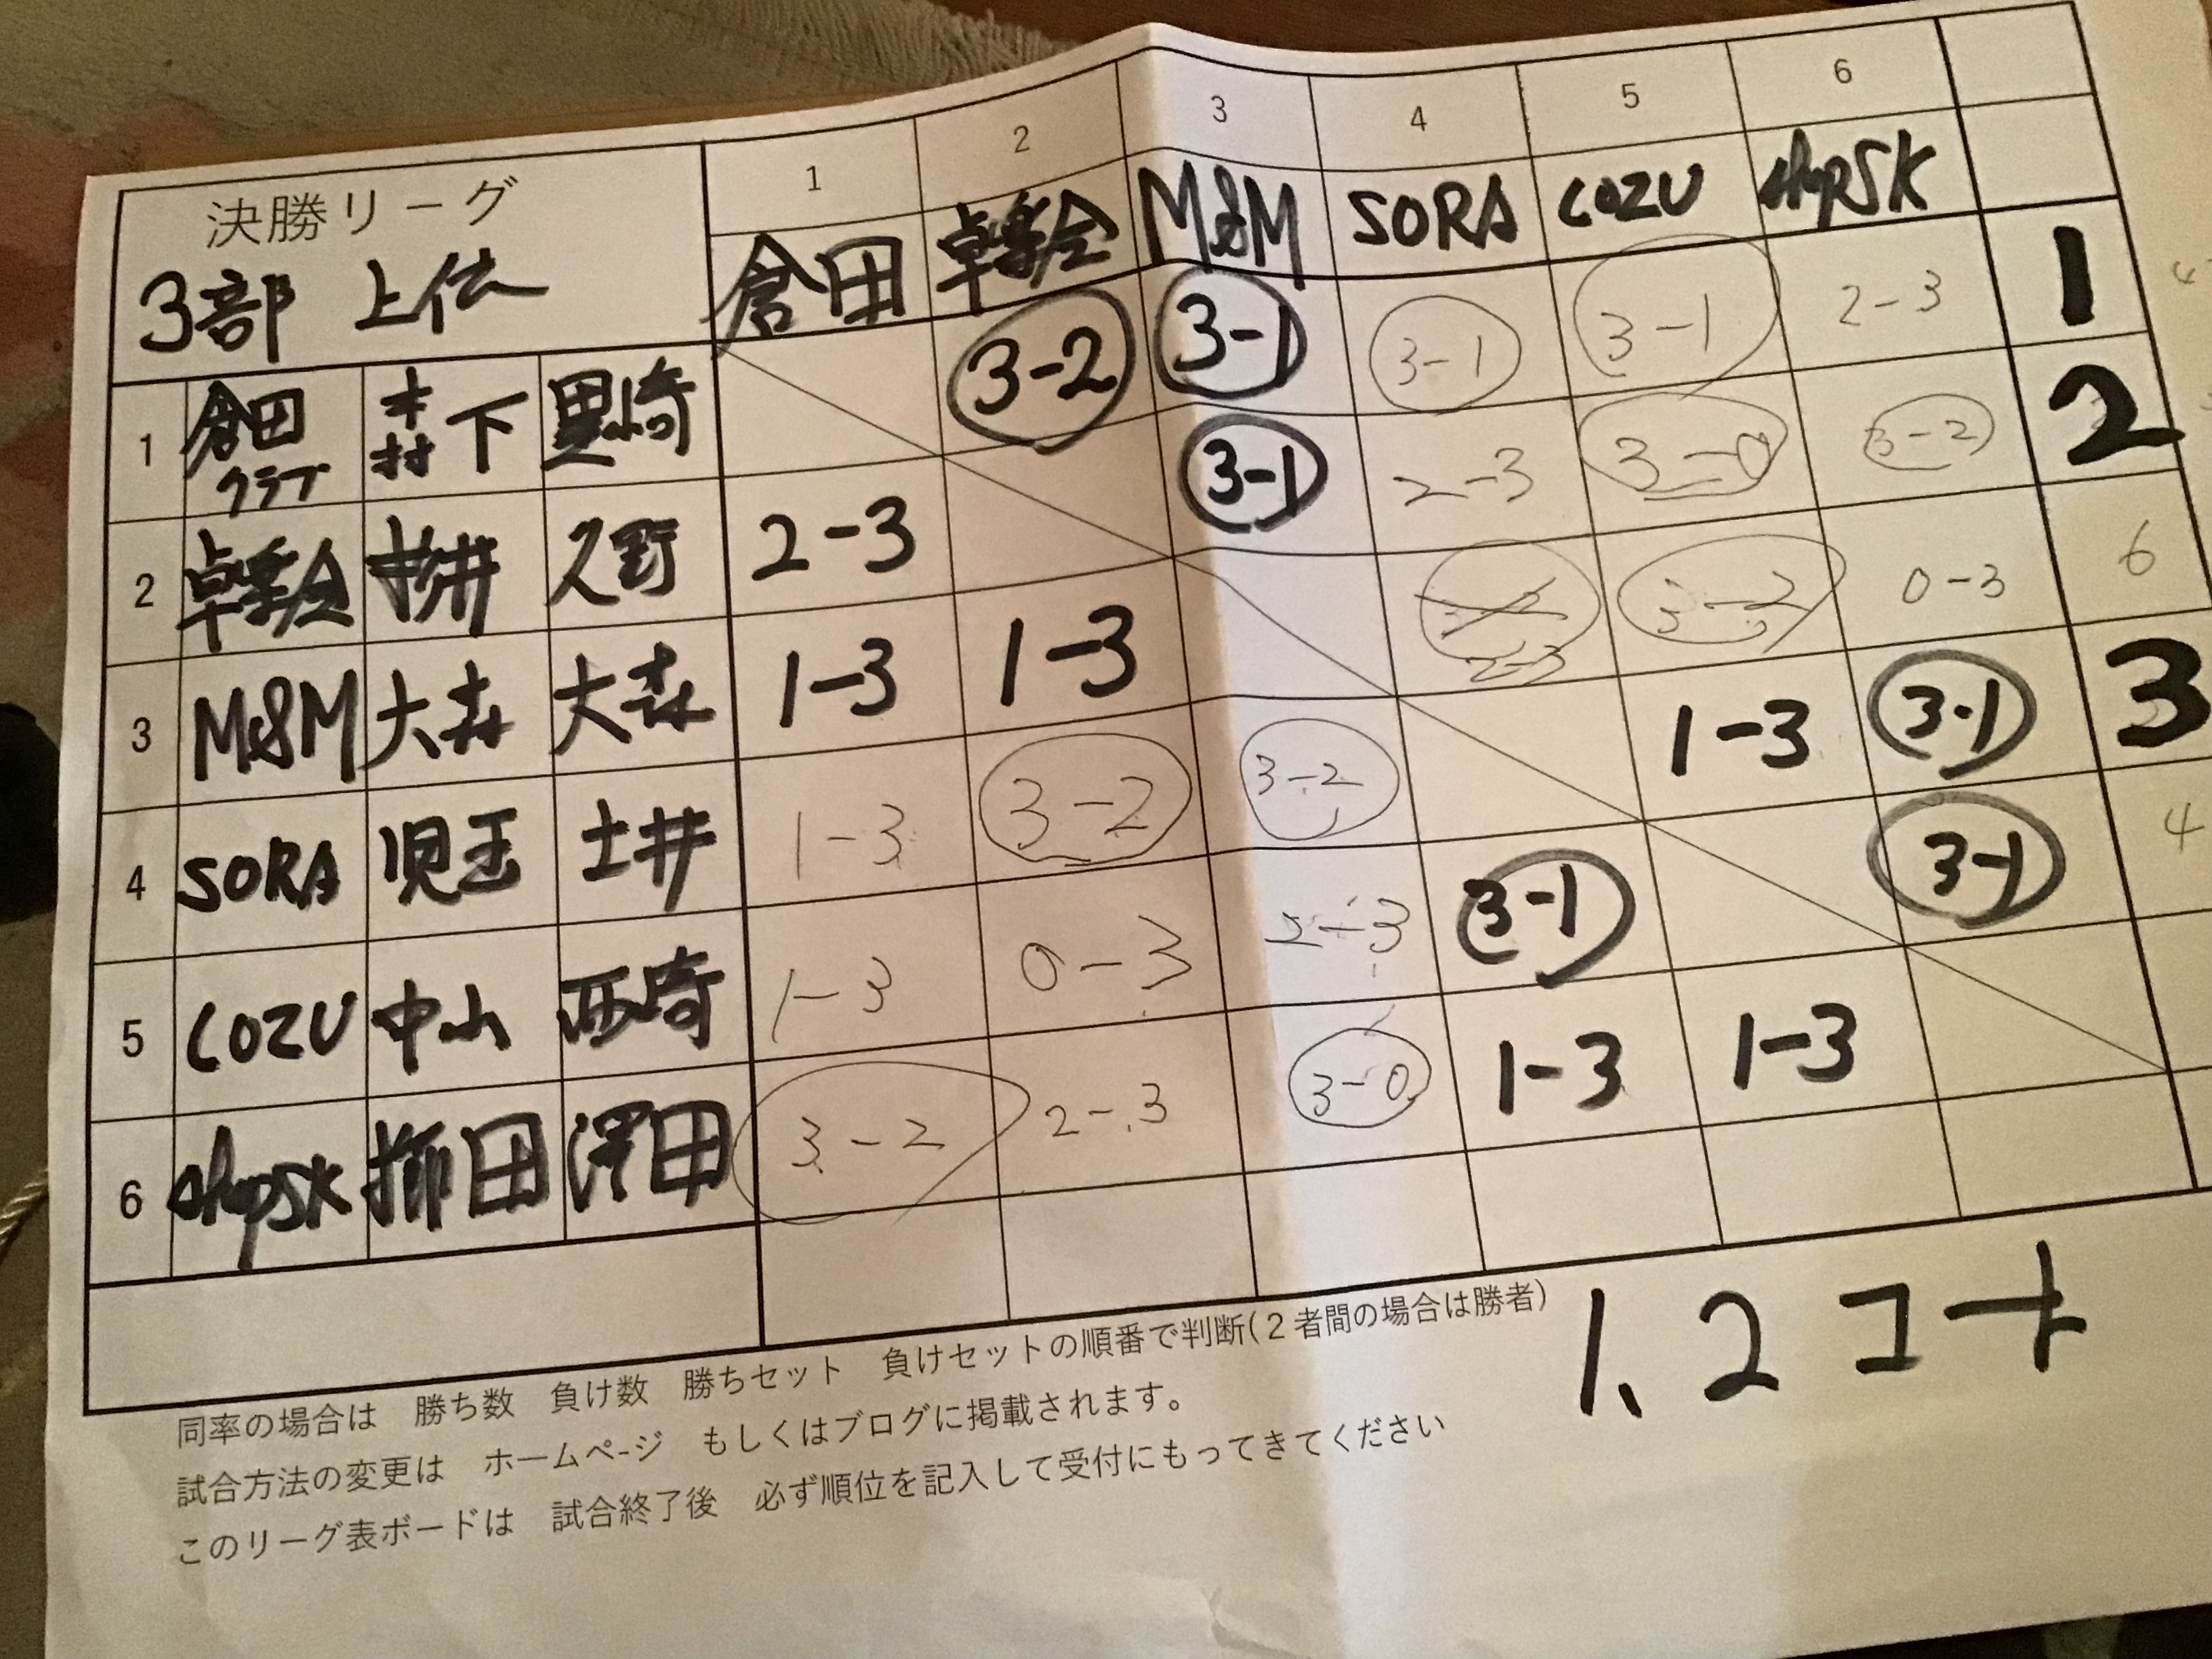 1 2 3 4 5 6
決勝リーグ
3部 上位
倉田 卓楽会 M&M SORA COZU
1 倉田クラブ 森下 黒崎 3-2 3-1 3-1 3-1 2-3 1
2 卓楽会 久野 2-3 3-1 2-3 3-0 3-2 2
3 M&M 大森 大森 1-3 1-3 2-3 3-2 0-3 6
4 SORA 児玉 土井 1-3 3-2 3-2 1-3 3-1 3
5 COZU 中山 西崎 1-3 0-3 2-3 3-1 3-1 4
6 澤田 3-2 2-3 3-0 1-3 1-3
同率の場合は 勝ち数 負け数 勝ちセット 負けセットの順番で判断(2者間の場合は勝者)
試合方法の変更は ホームページ もしくはブログに掲載されます。
このリーグ表ボードは 試合終了後 必ず順位を記入して受付にもってきてください
1、2コート